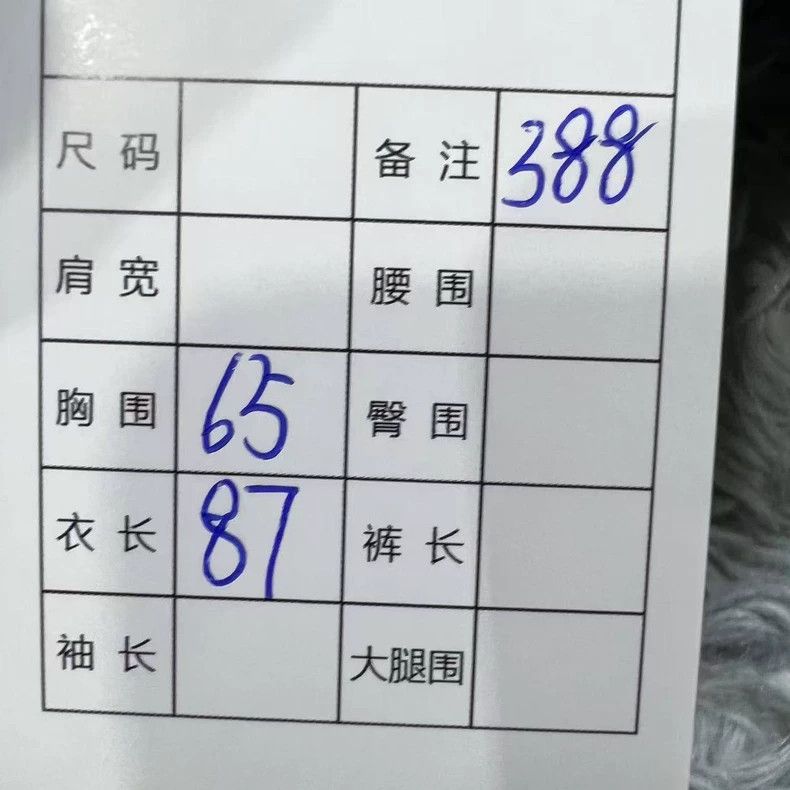 尺码 备注 388
肩宽 腰围
胸围 65 臀围
衣长 87 裤长
袖长 大腿围